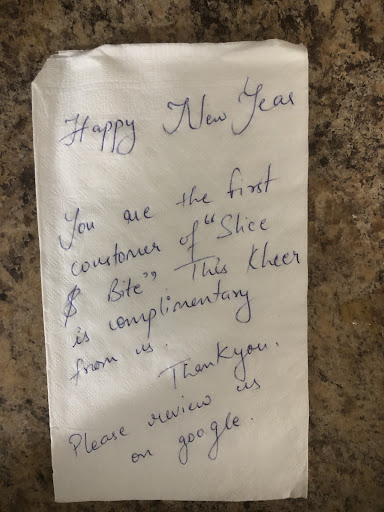 Happy New Year
You are the first
coustomer of "Slice
$ Bite". This Kheer
is complimentary
from us.
Thankyou.
Please review us
on google.